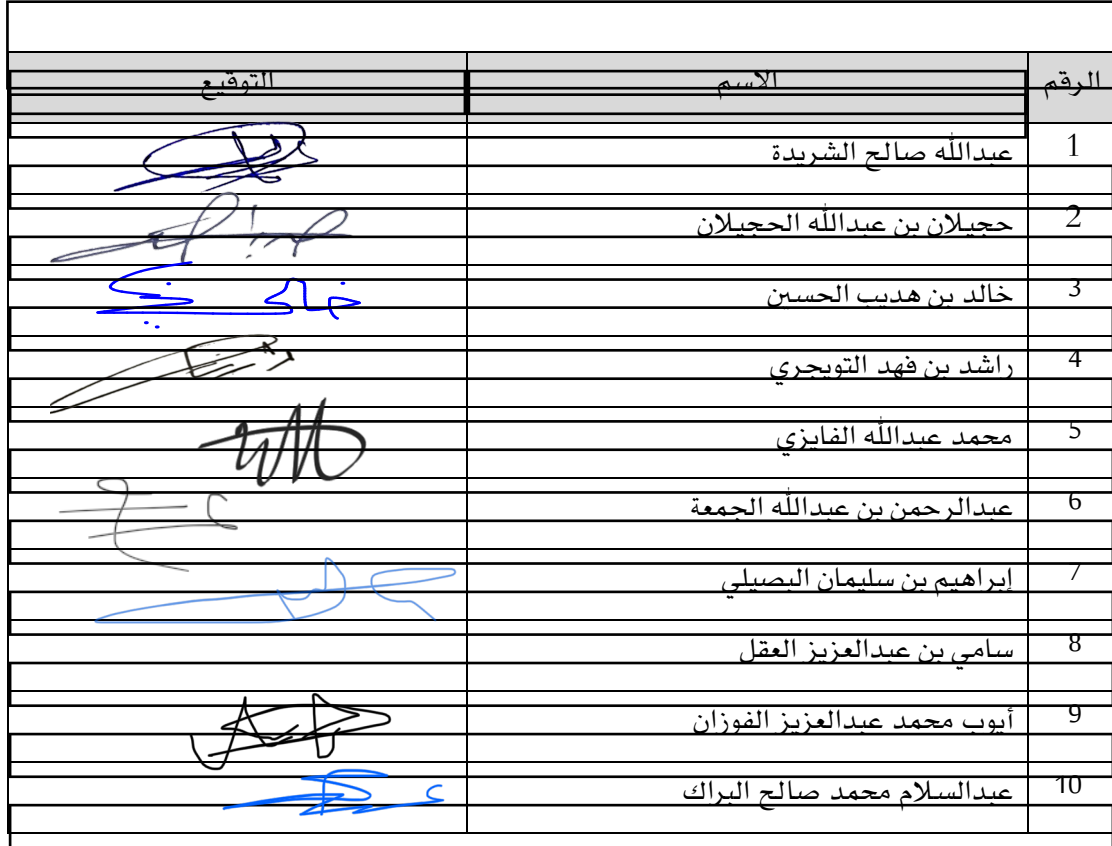 الرقم الاسم التوقيع
1 عبدالله صالح الشريدة
2 حجيلان بن عبدالله الحجيلان
3 خالد بن هديب الحسين
4 راشد بن فهد التويجري
5 محمد عبدالله الفايزي
6 عبدالرحمن بن عبدالله الجمعة
7 إبراهيم بن سليمان البصيلي
8 سامي بن عبدالعزيز العقل
9 أيوب محمد عبدالعزيز الفوزان
10 عبدالسلام محمد صالح البراك